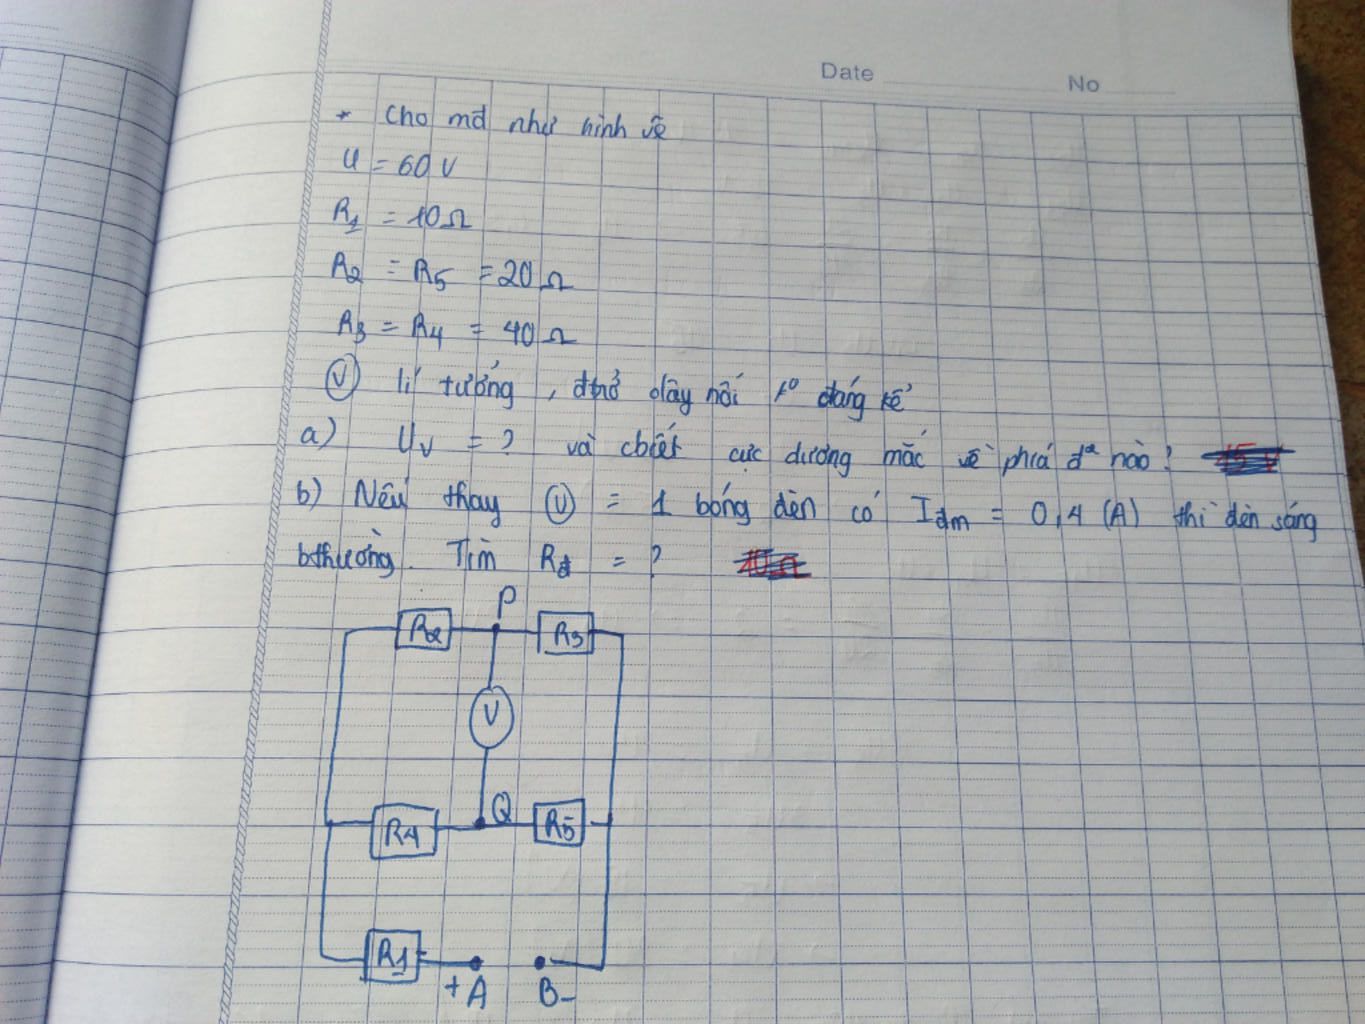 Date No
* Cho mđ như hình vẽ
U = 60 V
R1 = 10Ω
R2 = R5 = 20 Ω
R3 = R4 = 40 Ω
V lí tưởng, đtrở dây nối k° đáng kể
a) Uv = ? và cbiết cực dương mắc về phía đ² nào?
b) Nếu thay V = 1 bóng đèn có Iđm = 0,4 (A) thì đèn sáng
bthường. Tìm Rđ = ?
P
R2 R3
V
Q
R4 R5
R1
+A B-